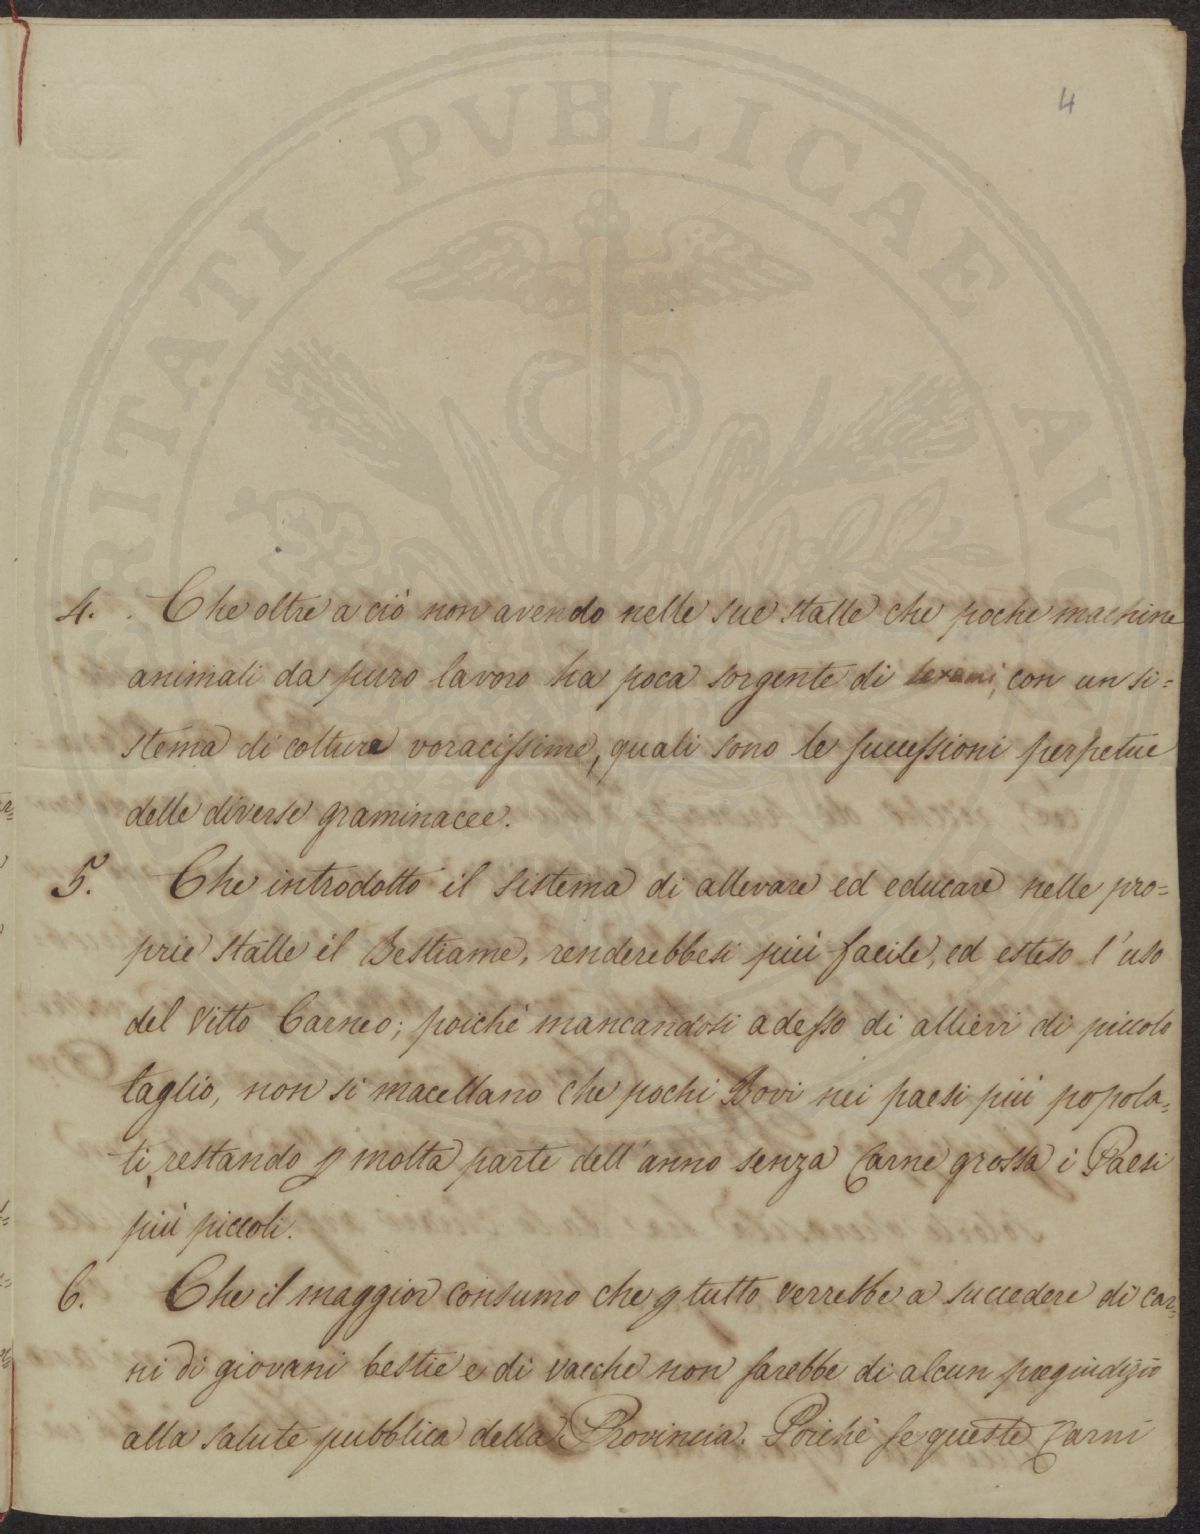 PVBLICAE
RITATI
AVC
4
4. Che oltre a ciò non avendo nelle sue stalle che poche machine
animali da puro lavoro ha poca sorgente di con un si=
stema di colture voracissime, quali sono le successioni perpetue
delle diverse graminacee.
5. Che introdotto il sistema di allevare ed educare nelle pro=
prie stalle il Bestiame, renderebbesi più facile, ed esteso l'uso
del Vitto Carneo; poiché mancandosi adesso di allievi di piccolo
taglio, non si macellano che pochi Bovi nei paesi più popola=
ti, restando p molta parte dell'anno senza Carne grossa i Paesi
più piccoli.
6. Che il maggior consumo che p tutto verrebbe a succedere di car=
ni di giovani bestie e di vacche non sarebbe di alcun pregiudizio
alla salute pubblica della Provincia. Poiché se queste Carni